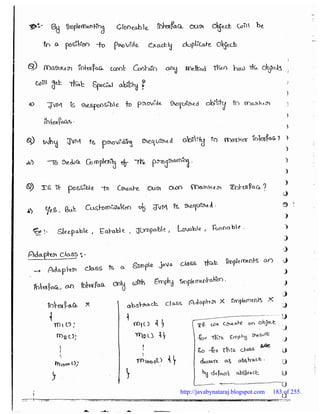 Ex:- By Implementing Cloneable Interface our object will be
in a position to provide exactly duplicate objects.
Q) Marker interface cont contain any method then how the objects
will get that Special ability?
A) JVM is responsible to provide required ability in marker
interfaces.
Q) Why JVM is providing required ability in marker interfaces?
A) To Reduce Complexity of the programming.
Q) Is it possible to create our own Marker Interface?
A) Yes, But customization of JVM is required.
Ex:- Sleepable, Eatable, Jumpable, Lovable, Funnable.
Adapter class :-
→ Adapter class is a simple java class that implements an
interface, only with Empty implementation.
interface X
{
m1();
m2();
m1000();
}
abstract class AdapterX implements X
{
m1() { }
m2() { }
m1000() { }
}
If we create an object
for this Empty result
So for this class we
declare as abstract.
by default abstract
http://javabynataraj.blogspot.com 183 of 255.